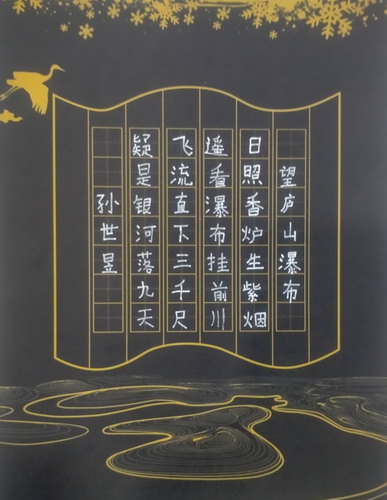 望庐山瀑布
日照香炉生紫烟
遥看瀑布挂前川
飞流直下三千尺
疑是银河落九天
孙世昱